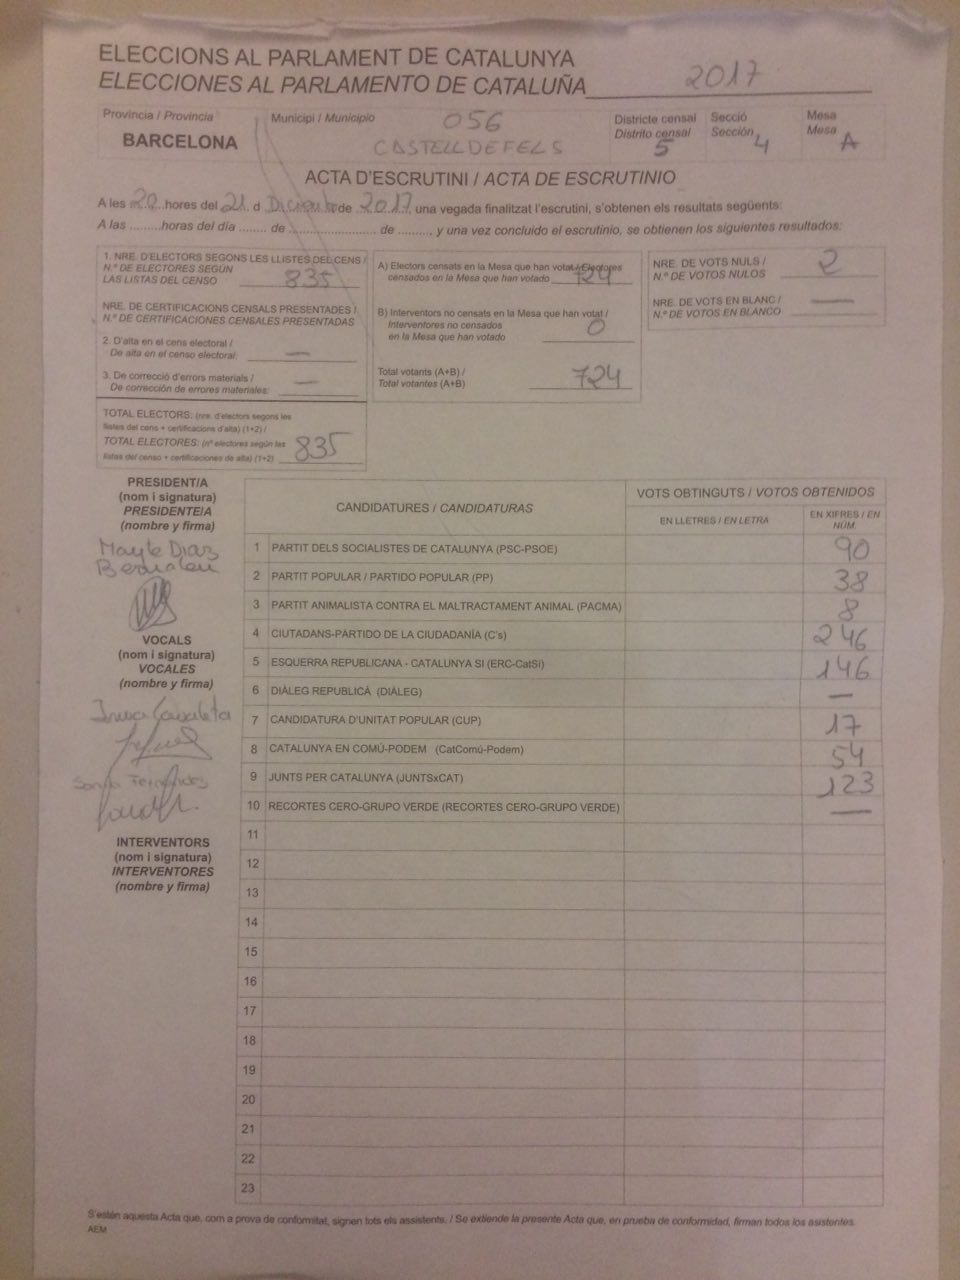 ELECCIONS AL PARLAMENT DE CATALUNYA
ELECCIONES AL PARLAMENTO DE CATALUÑA 2017
Provincia / Provincia
BARCELONA
Municipi / Municipio 056
CASTELLDEFELS
Districte censal
Distrito censal
5
Secció
Sección
4
Mesa
Mesa
A
ACTA D'ESCRUTINI / ACTA DE ESCRUTINIO
A les 20 hores del 21 d de 2017, una vegada finalitzat l'escrutini, s'obtenen els resultats següents:
A las .........horas del día ........ de ............................ de ........., y una vez concluido el escrutinio, se obtienen los siguientes resultados:
1. NRE. D'ELECTORS SEGONS LES LLISTES DEL CENS /
N.º DE ELECTORES SEGÚN
LAS LISTAS DEL CENSO 835
NRE. DE CERTIFICACIONS CENSALS PRESENTADES /
N.º DE CERTIFICACIONES CENSALES PRESENTADAS
2. D'alta en el cens electoral /
De alta en el censo electoral: —
3. De correcció d'errors materials /
De corrección de errores materiales: —
TOTAL ELECTORS: (nre. d'electors segons les
llistes del cens + certificacions d'alta) (1+2) /
TOTAL ELECTORES: (nº electores según las
listas del censo + certificaciones de alta) (1+2) 835
A) Electors censats en la Mesa que han votat / Electores
censados en la Mesa que han votado 724
B) Interventors no censats en la Mesa que han votat /
Interventores no censados
en la Mesa que han votado 0
Total votants (A+B) /
Total votantes (A+B) 724
NRE. DE VOTS NULS /
N.º DE VOTOS NULOS 2
NRE. DE VOTS EN BLANC /
N.º DE VOTOS EN BLANCO —
PRESIDENT/A
(nom i signatura)
PRESIDENTE/A
(nombre y firma)
Mayte Diaz
VOCALS
(nom i signatura)
VOCALES
(nombre y firma)
INTERVENTORS
(nom i signatura)
INTERVENTORES
(nombre y firma)
CANDIDATURES / CANDIDATURAS
VOTS OBTINGUTS / VOTOS OBTENIDOS
EN LLETRES / EN LETRA
EN XIFRES / EN NÚM.
1 PARTIT DELS SOCIALISTES DE CATALUNYA (PSC-PSOE) 90
2 PARTIT POPULAR / PARTIDO POPULAR (PP) 38
3 PARTIT ANIMALISTA CONTRA EL MALTRACTAMENT ANIMAL (PACMA) 8
4 CIUTADANS-PARTIDO DE LA CIUDADANÍA (C's) 246
5 ESQUERRA REPUBLICANA - CATALUNYA SI (ERC-CatSí) 146
6 DIÀLEG REPUBLICÀ (DIÀLEG) —
7 CANDIDATURA D'UNITAT POPULAR (CUP) 17
8 CATALUNYA EN COMÚ-PODEM (CatComú-Podem) 54
9 JUNTS PER CATALUNYA (JUNTSxCAT) 123
10 RECORTES CERO-GRUPO VERDE (RECORTES CERO-GRUPO VERDE) —
11
12
13
14
15
16
17
18
19
20
21
22
23
S'estén aquesta Acta que, com a prova de conformitat, signen tots els assistents. / Se extiende la presente Acta que, en prueba de conformidad, firman todos los asistentes.
AEM